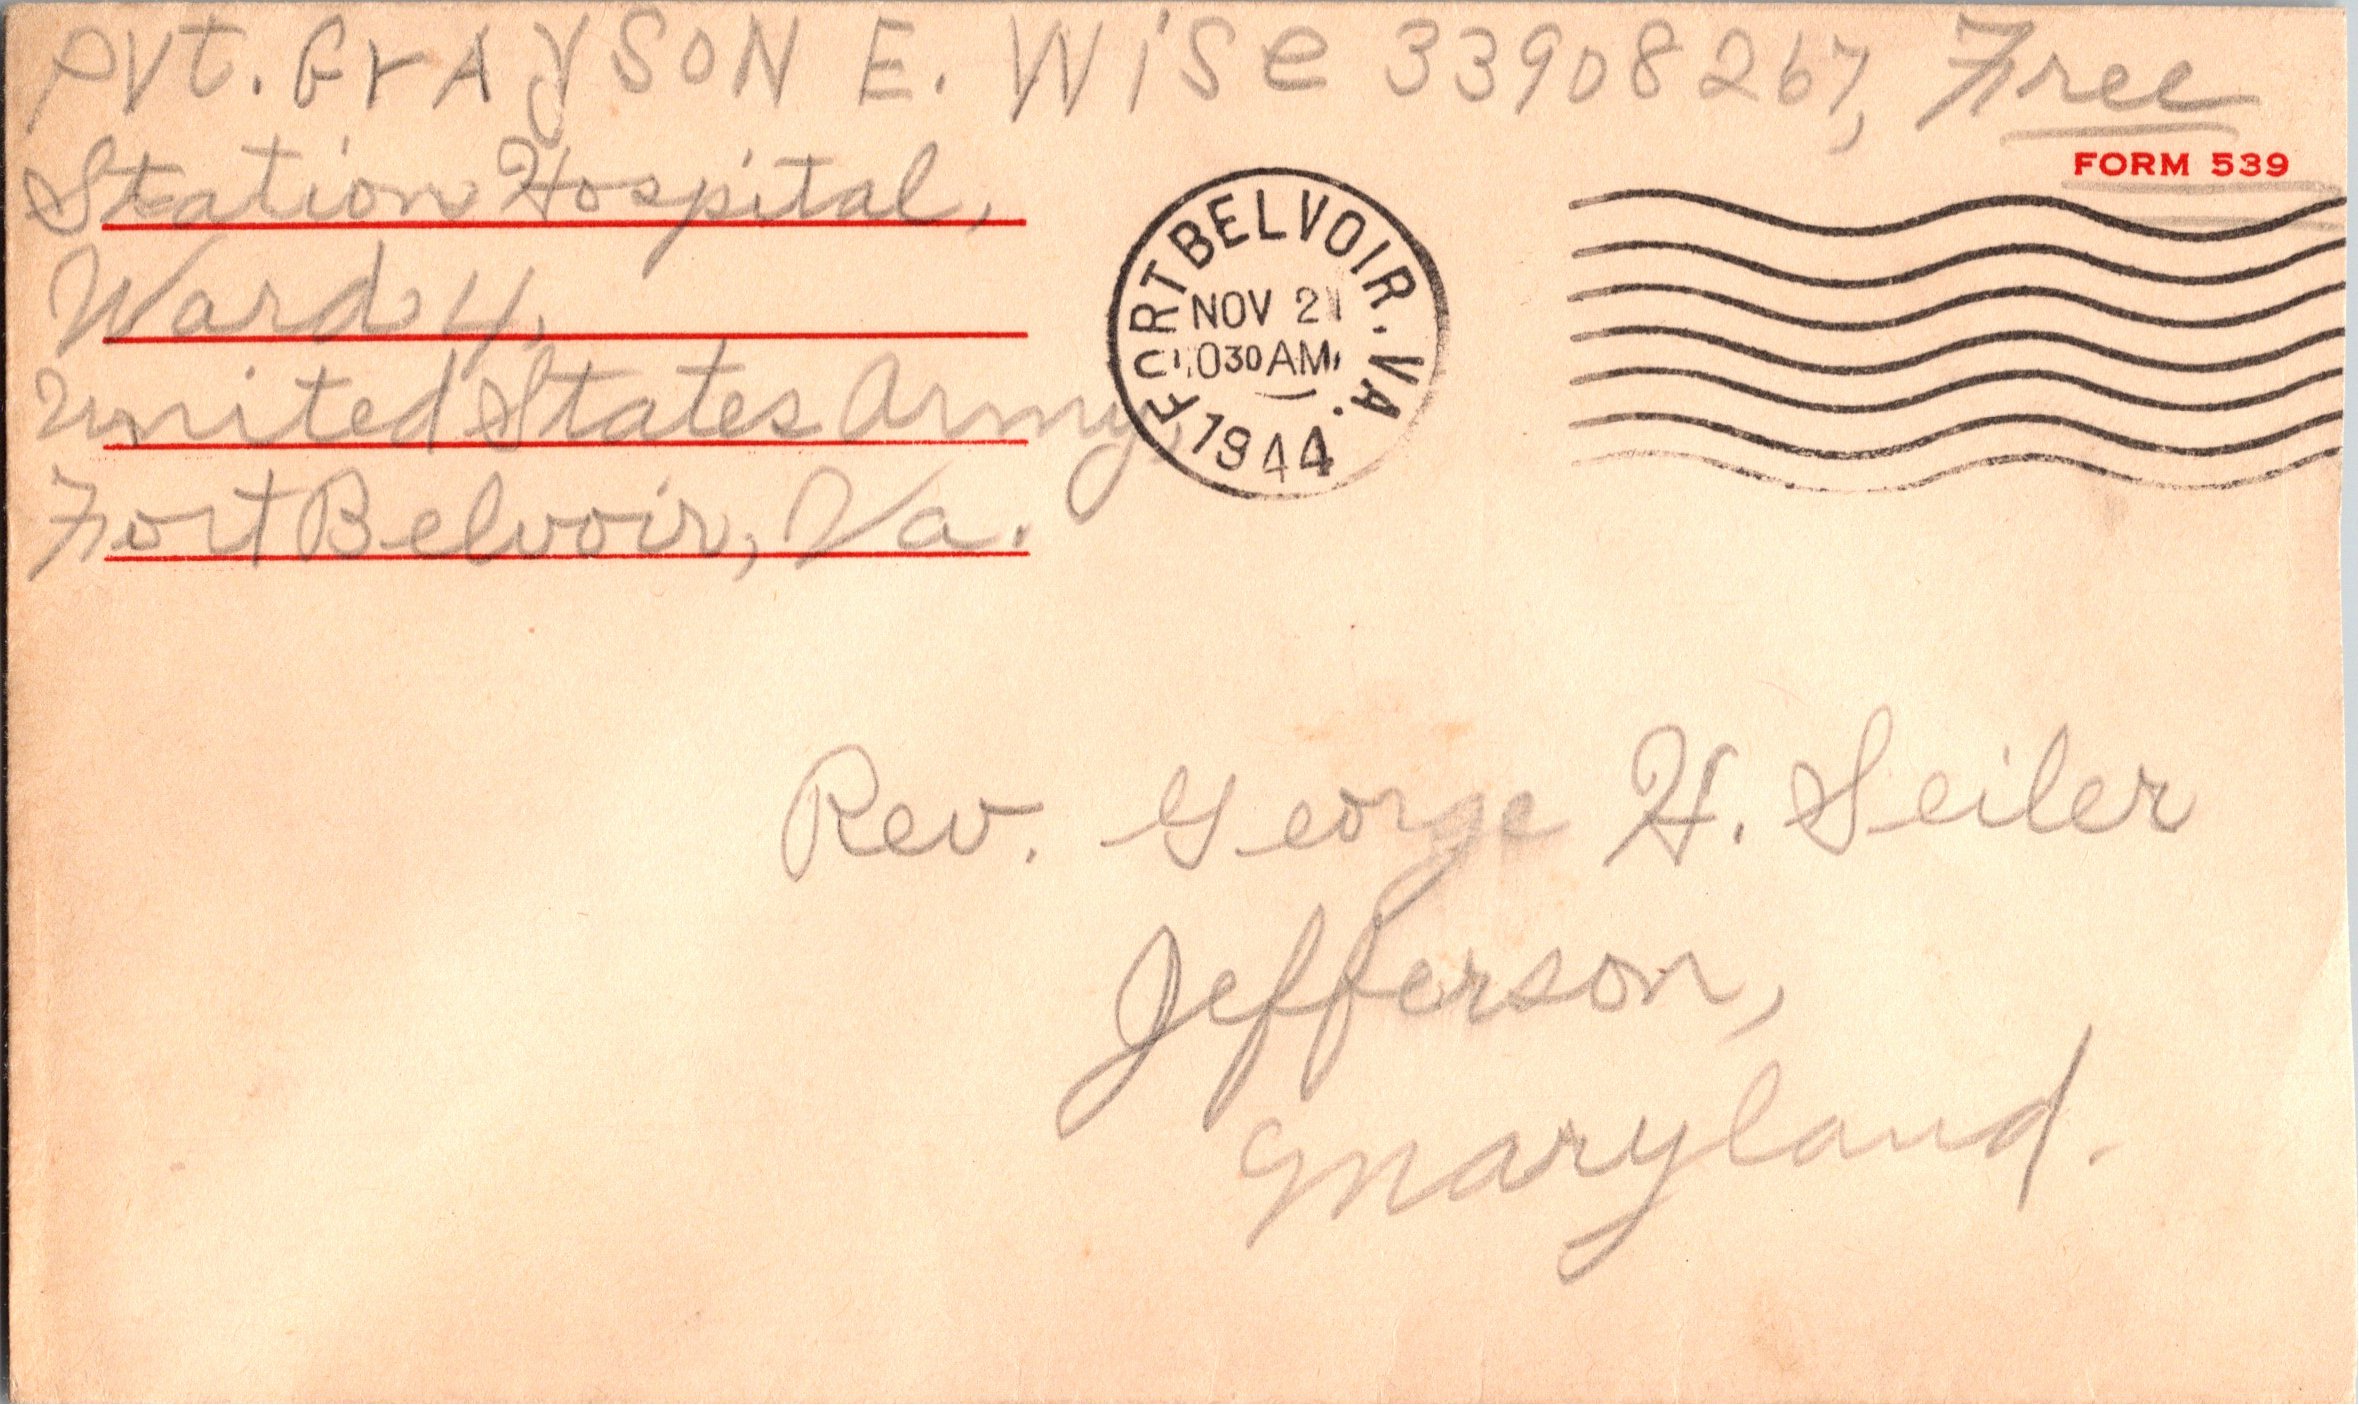 Pvt. GrAySoN E. Wise 33908267, Free
FORM 539
Station Hospital,
Ward 4,
United States Army,
Fort Belvoir, Va.
FORT BELVOIR. VA.
NOV 21
1030 AM
1944
Rev. George H. Seiler
Jefferson,
Maryland.